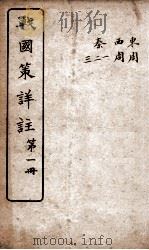 東周
西周
秦一二三
戰國策詳註 第一冊
mtoou.info